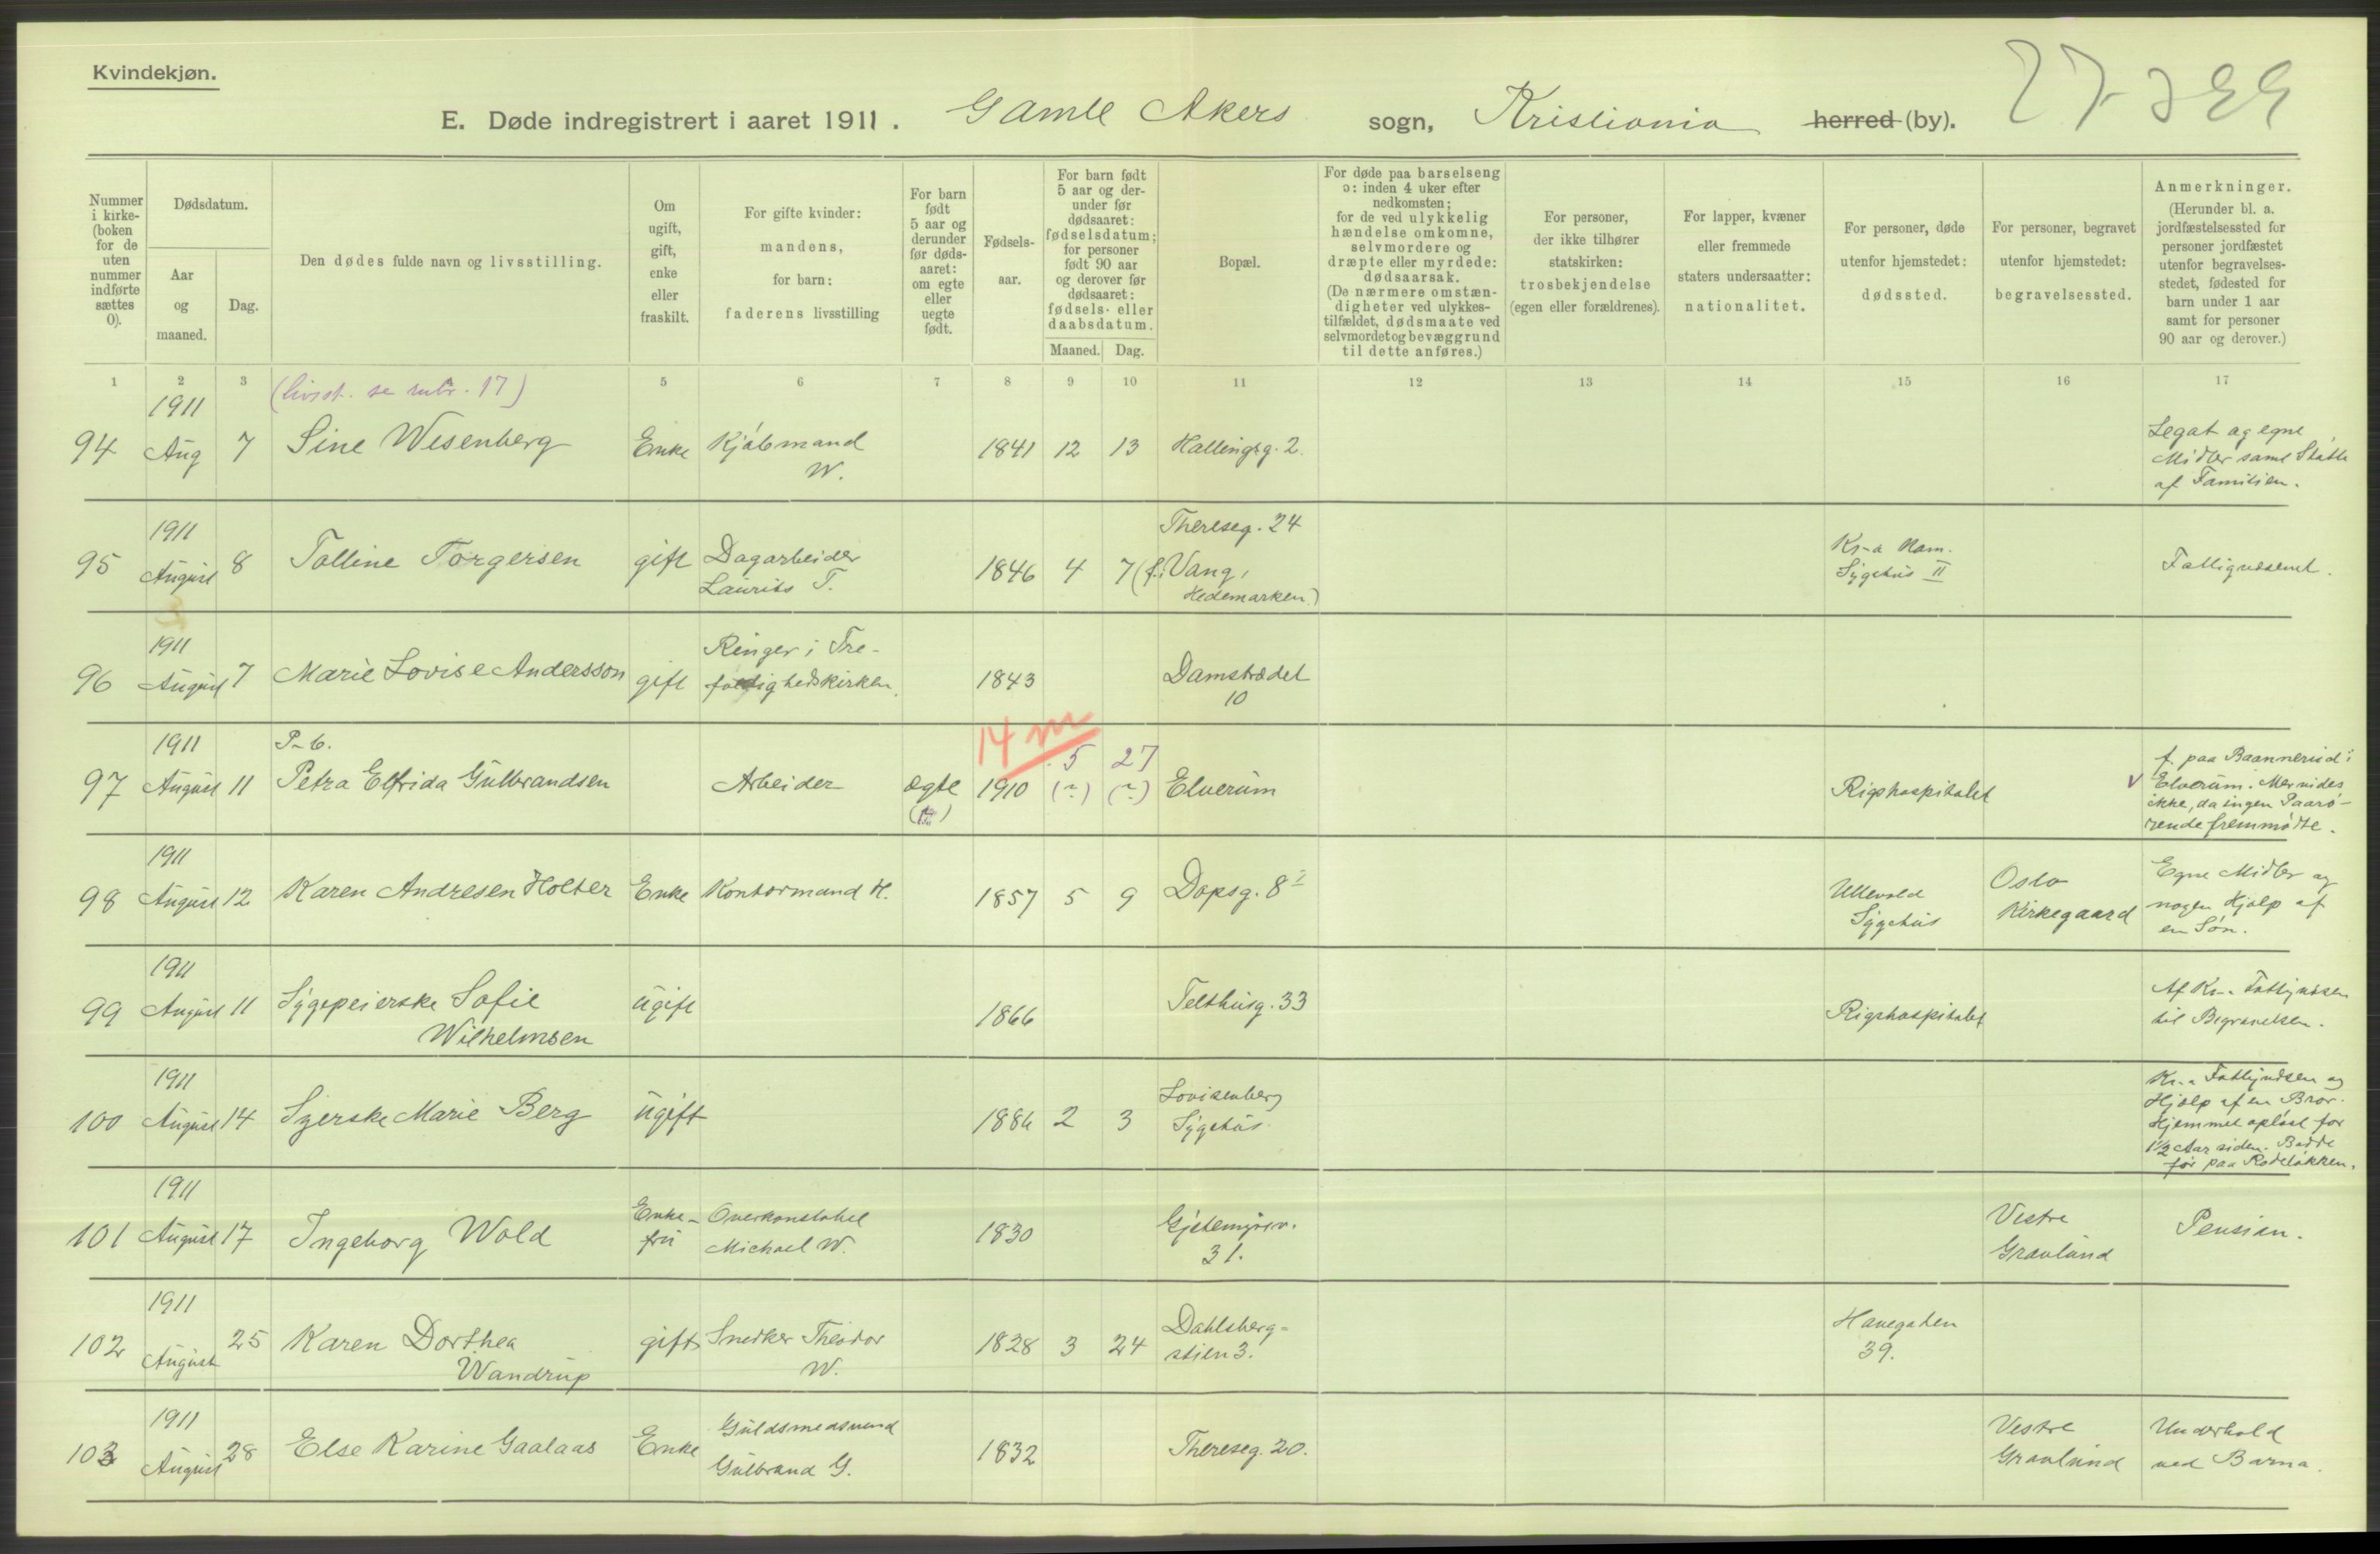 Kvindekjøn.
E. Døde indregistrert i aaret 1911. Gamle Akers sogn, Kristiania herred (by).
Nummer i kirke- (boken for de uten nummer indførte sættes 0).
Dødsdatum.
Aar og maaned.
Dag.
Den dødes fulde navn og livsstilling.
Om ugift, gift, enke eller fraskilt.
For gifte kvinder: mandens, for barn: faderens livsstilling
For barn født 5 aar og derunder før døds- aaret: om egte eller uegte født.
Fødsels- aar.
For barn født 5 aar og der- under før dødsaaret: fødselsdatum; for personer født 90 aar og derover før dødsaaret: fødsels- eller daabsdatum.
Maaned. Dag.
Bopæl.
For døde paa barselseng ɔ: inden 4 uker efter nedkomsten; for de ved ulykkelig hændelse omkomne, selvmordere og dræpte eller myrdede: dødsaarsak. (De nærmere omstæn- digheter ved ulykkes- tilfældet, dødsmaate ved selvmordet og bevæggrund til dette anføres.)
For personer, der ikke tilhører statskirken: trosbekjendelse (egen eller forældrenes).
For lapper, kvæner eller fremmede staters undersaatter: nationalitet.
For personer, døde utenfor hjemstedet: dødssted.
For personer, begravet utenfor hjemstedet: begravelsessted.
Anmerkninger. (Herunder bl. a. jordfæstelsessted for personer jordfæstet utenfor begravelses- stedet, fødested for barn under 1 aar samt for personer 90 aar og derover.)
1 2 3 5 6 7 8 9 10 11 12 13 14 15 16 17
(livsst. se rubr. 17)
1911
94 Aug 7 Sine Wesenberg Enke Kjøbmand W. 1841 12 13 Hallingsg. 2. Legat og egne Midler samt Støtte af Familien.
1911
95 August 8 Talline Torgersen gift Dagarbeider Laurits T. 1846 4 7 Thereseg. 24 (f. i Vang, Hedemarken) Kr-a Kom. Sygehus II Fattigvæsenet.
1911
96 August 7 Marie Lovise Andersson gift Ringer i Tre- foldighedskirken. 1843 Damstrædet 10
14 m
1911 P-b.
97 August 11 Petra Elfrida Gulbrandsen Arbeider ægte 1910 5 27 (?) (?) Elverum Rigshospitalet f. paa Baannerud i Elverum. Mer vides ikke, da ingen Paarø- rende fremmødte.
1911
98 August 12 Karen Andresen Holter Enke Kontormand H. 1857 5 9 Dopsg. 8 I Ullevold Sygehus Oslo Kirkegaard Egne Midler og nogen Hjælp af en Søn.
1911
99 August 11 Sygepleierske Sofie Wilhelmsen ugift 1866 Telthusg. 33 Rigshospitalet Af Kr.a Fattigvæsen til Begravelsen.
1911
100 August 14 Syerske Marie Berg ugift 1886 2 3 Lovisenberg Sygehus. Kr.a Fattigvæsen og Hjælp af en Bror. Hjemmet opløst for 1½ Aar siden. Bodde før paa Rodeløkken.
1911
101 August 17 Ingeborg Wold Enke- fru Overkonstabel Michael W. 1830 Gjetemyrsv. 31. Vestre Gravlund Pension.
1911
102 August 25 Karen Dorthea Wandrup gift Snedker Theodor W. 1828 3 24 Dahlsberg- stien 3. Havegaten 39.
1911
103 August 28 Else Karine Gaalaas Enke Guldsmedsvend Gulbrand G. 1832 Thereseg. 20. Vestre Gravlund Underhold ved Barna.